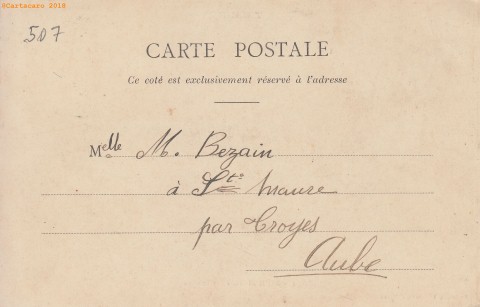 ©Cartacaro 2018
507
CARTE POSTALE
Ce coté est exclusivement réservé à l'adresse
Melle M. Bezain
à Ste Maure
par Troyes
Aube